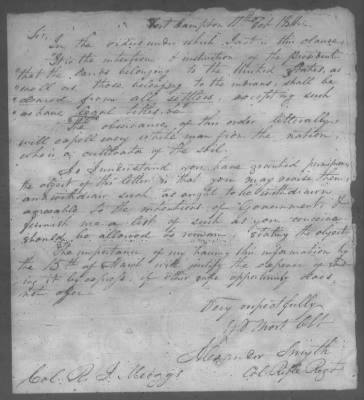 Fort Hampton 11th Feb 1811.
Sir,
In the orders under which I act is this clause,
"It is the intention & instruction of the President
that the lands belonging to the United States, as
well as those belonging to the indians, shall be
cleared from all settlers, excepting such
as have legal titles, &c"
The observance of this order litterally,
will expell every white man from the nation,
who is a cultivator of the soil.
As I understand you have granted permissions,
the object of this letter is, that you may revise them,
and withdraw such, as ought to be withdrawn
agreeably to the intentions of Government, &
furnish me a list of such as you conceive
should be allowed to remain, stating the object.
The importance of my having this information by
the 15th of March will justify the expence of sending
it by express, if other safe opportunity does
not offer.
Very respectfully
Yr Most Obt
Alexander Smyth
Col. Rifle Regt
Col. R. J. Meiggs